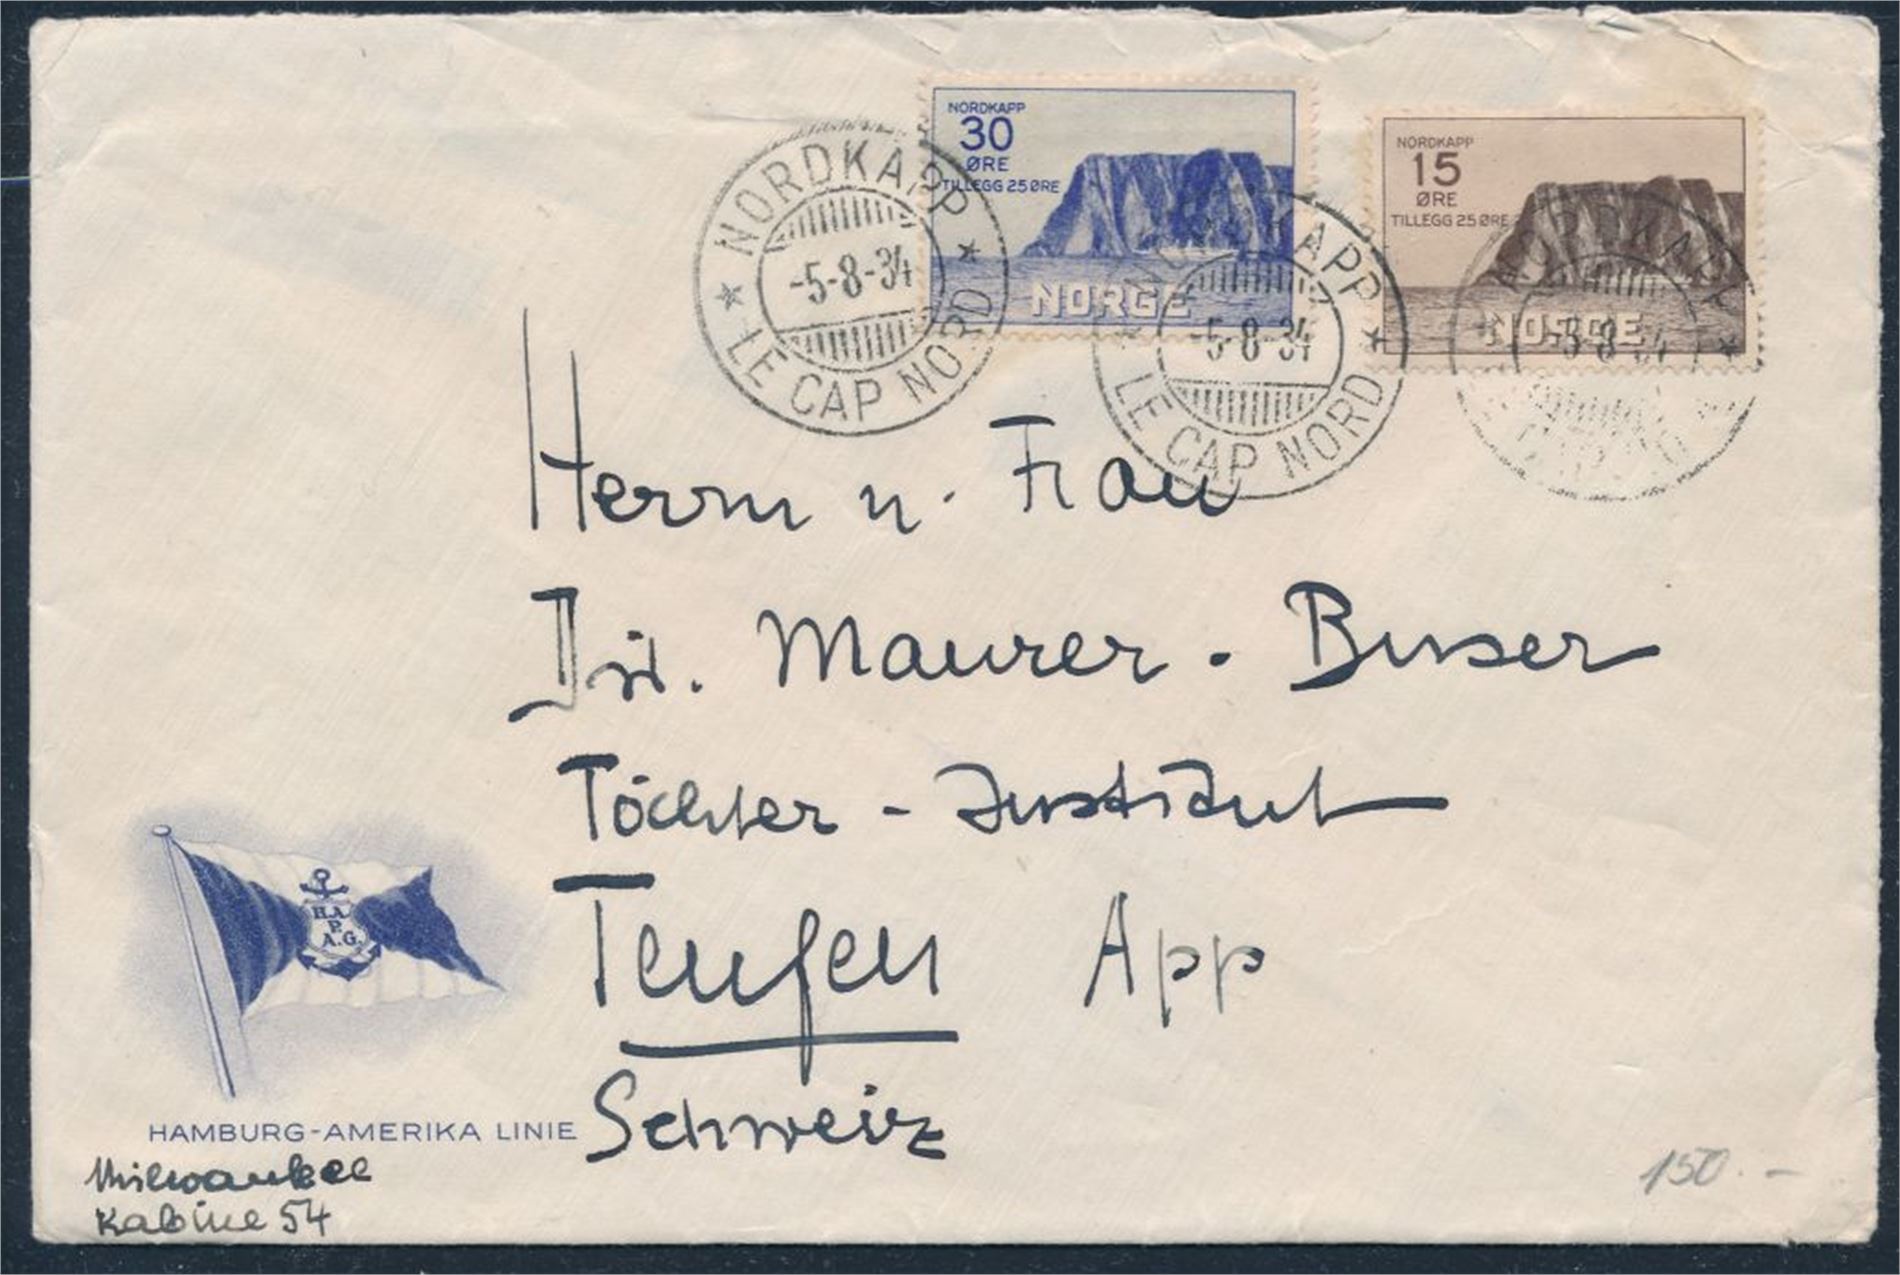 NORDKAPP
30
ØRE
TILLEGG 25 ØRE
NORGE
NORDKAPP
15
ØRE
TILLEGG 25 ØRE
NORGE
NORDKAPP
-5-8-34
LE CAP NORD
NORDKAPP
-5-8-34
LE CAP NORD
NORDKAPP
-5-8-34
Herrn u. Frau
Dir. Maurer - Buser
Töchter - Institut
Teufen App
Schweiz
H.A.
P.
A.G.
HAMBURG-AMERIKA LINIE
Milwaukee
Kabine 54
150.-